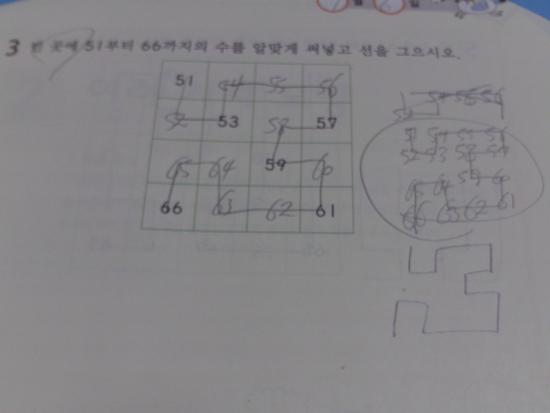 3 빈 곳에 51부터 66까지의 수를 알맞게 써넣고 선을 그으시오.
51 54 55 56
52 53 58 57
65 64 59 60
66 63 62 61
51 54 55 56
52 53 58 57
65 64 59 60
66 63 62 61